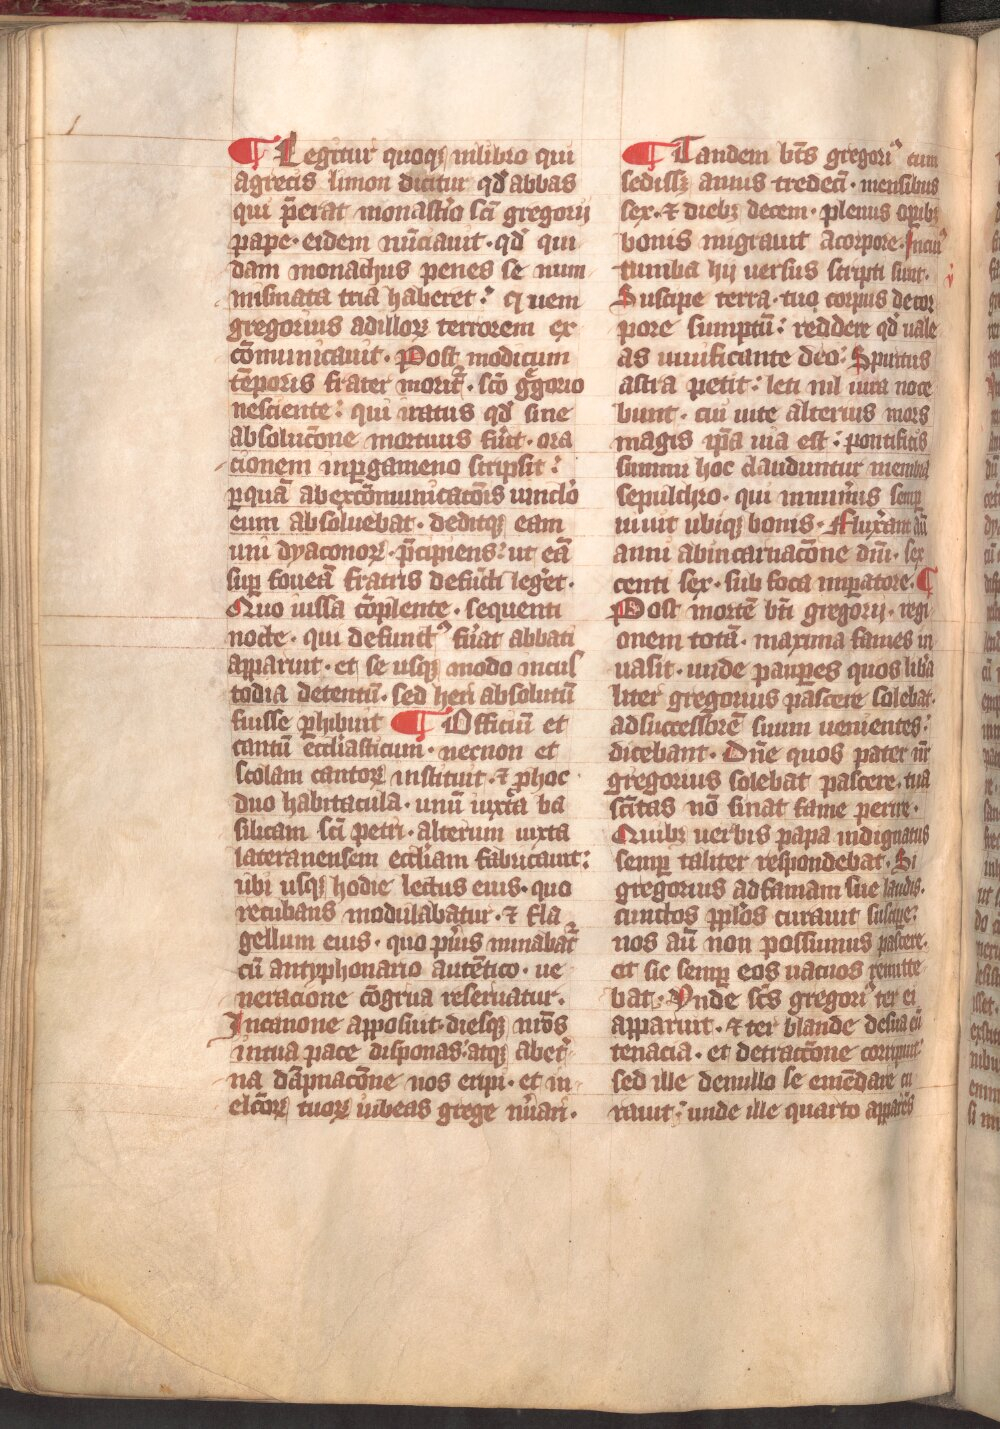 ¶ Legitur quoqꝫ inlibro qui
agrecis limon dicitur qd̓ abbas
qui p̄erat monast̓io sc̄i gregorij
pape · eidem nūciauit · qd̓ qui
dam monachus penes se num
mismata tria haberet : quem
gregorius adilloꝝ terrorem ex
cōmunicauit · Postqꝫ modicum
tēporis frater moritᷣ · sc̄o g̓gorio
nesciente : qui iratus qd̓ sine
absoluc̄one mortuus fu̓it · ora
cionem inꝑgameno scripsit :
ꝑquā abexcōmunicac̄ois uinclo̓
eum absoluebat · deditqꝫ eam
uni dyaconoꝝ · p̄cipiens : ut eā
suꝑ foueā fratris defūcti leg̓et ·
Quo iussa cōplente · sequenti
nocte · qui defunctꝰ fu̓at abbati
apparuit · et se usqꝫ modo incus
todia detentū · sed heri absolutū
fuisse ꝑhibuit ¶ Officiū et
cantū eccl̄iasticum · necnon et
scolam cantoꝝ instituit · ⁊ ꝓhoc
duo habitacula · unū iuxta ba
silicam sc̄i petri · alterum iuxta
lateranensem eccl̄iam fabricauit :
ubi usqꝫ hodie lectus eius · quo
recubans modulabatur · ⁊ fla
gellum eius · quo pu̓is minabatᷣ
cū antyphonario autētico · ue
neracione cōgrua reseruatur ·
Incanone apposuit · diesqꝫ nr̄os
intua pace disponas : atqꝫ abet̓
na dāpnac̄one nos eripi · et in
elc̄oꝝ tuoꝝ iubeas grege nu̓ari ·
¶ Tandem bt̄s gregoriꝰ cum
sedissꝫ annis tredecī · mensibus
sex · ⁊ diebꝫ decem · plenus opibꝫ
bonis migrauit acorpore · Incuiꝰ
tumba hij uersus scripti sunt ·
Suscipe terra · tuo corpus decor
pore sumptū : reddere qd̓ uale
as uiuificante deo : Spiritus
astra petit : leti nil iura noce
bunt · cui uite alterius mors
magis ip̄a uia est : pontificis
summi hoc clauduntur membra
sepulchro · qui innum̓is semꝑ
uiuit ubiqꝫ bonis · Flux̓ant dū
anni abincarnac̄one dn̄i · sex
centi sex · sub foca impatore · ¶
Post mortē bt̄i gregorij · regi
onem totā · maxima fames in
uasit · unde pauꝑes quos lib̓a
liter gregorius pascere solebat ·
adsuccessorē suum uenientes :
dicebant · Dn̄e quos pater nr̄
gregorius solebat pascere · tua
sc̄itas nō sinat fame perire ·
Quibꝫ uerbis papa indignatus
semꝑ taliter respondebat · Si
gregorius adfamam sue laudis ·
cunctos ppl̓os curauit suscipe :
nos aū non possumus pascere ·
et sic semꝑ eos uacuos remitte
bat · Vnde sc̄s gregoriꝰ ter ei
apparuit · ⁊ ter blande desua
tenacia · et detracc̄one corripuit :
sed ille denullo se emēdare cu
rauit : unde ille quarto apparēs